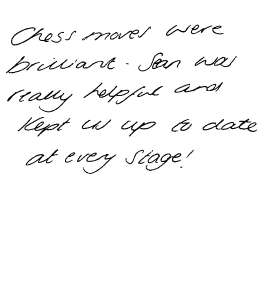 Chess moves were
brilliant. Sean was
really helpful and
kept us up to date
at every stage!